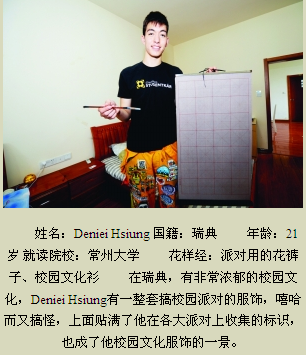 姓名：Deniei Hsiung 国籍：瑞典 年龄：21
岁 就读院校：常州大学 花样经：派对用的花裤
子、校园文化衫 在瑞典，有非常浓郁的校园文
化，Deniei Hsiung有一整套搞校园派对的服饰，嘻哈
而又搞怪，上面贴满了他在各大派对上收集的标识，
也成了他校园文化服饰的一景。